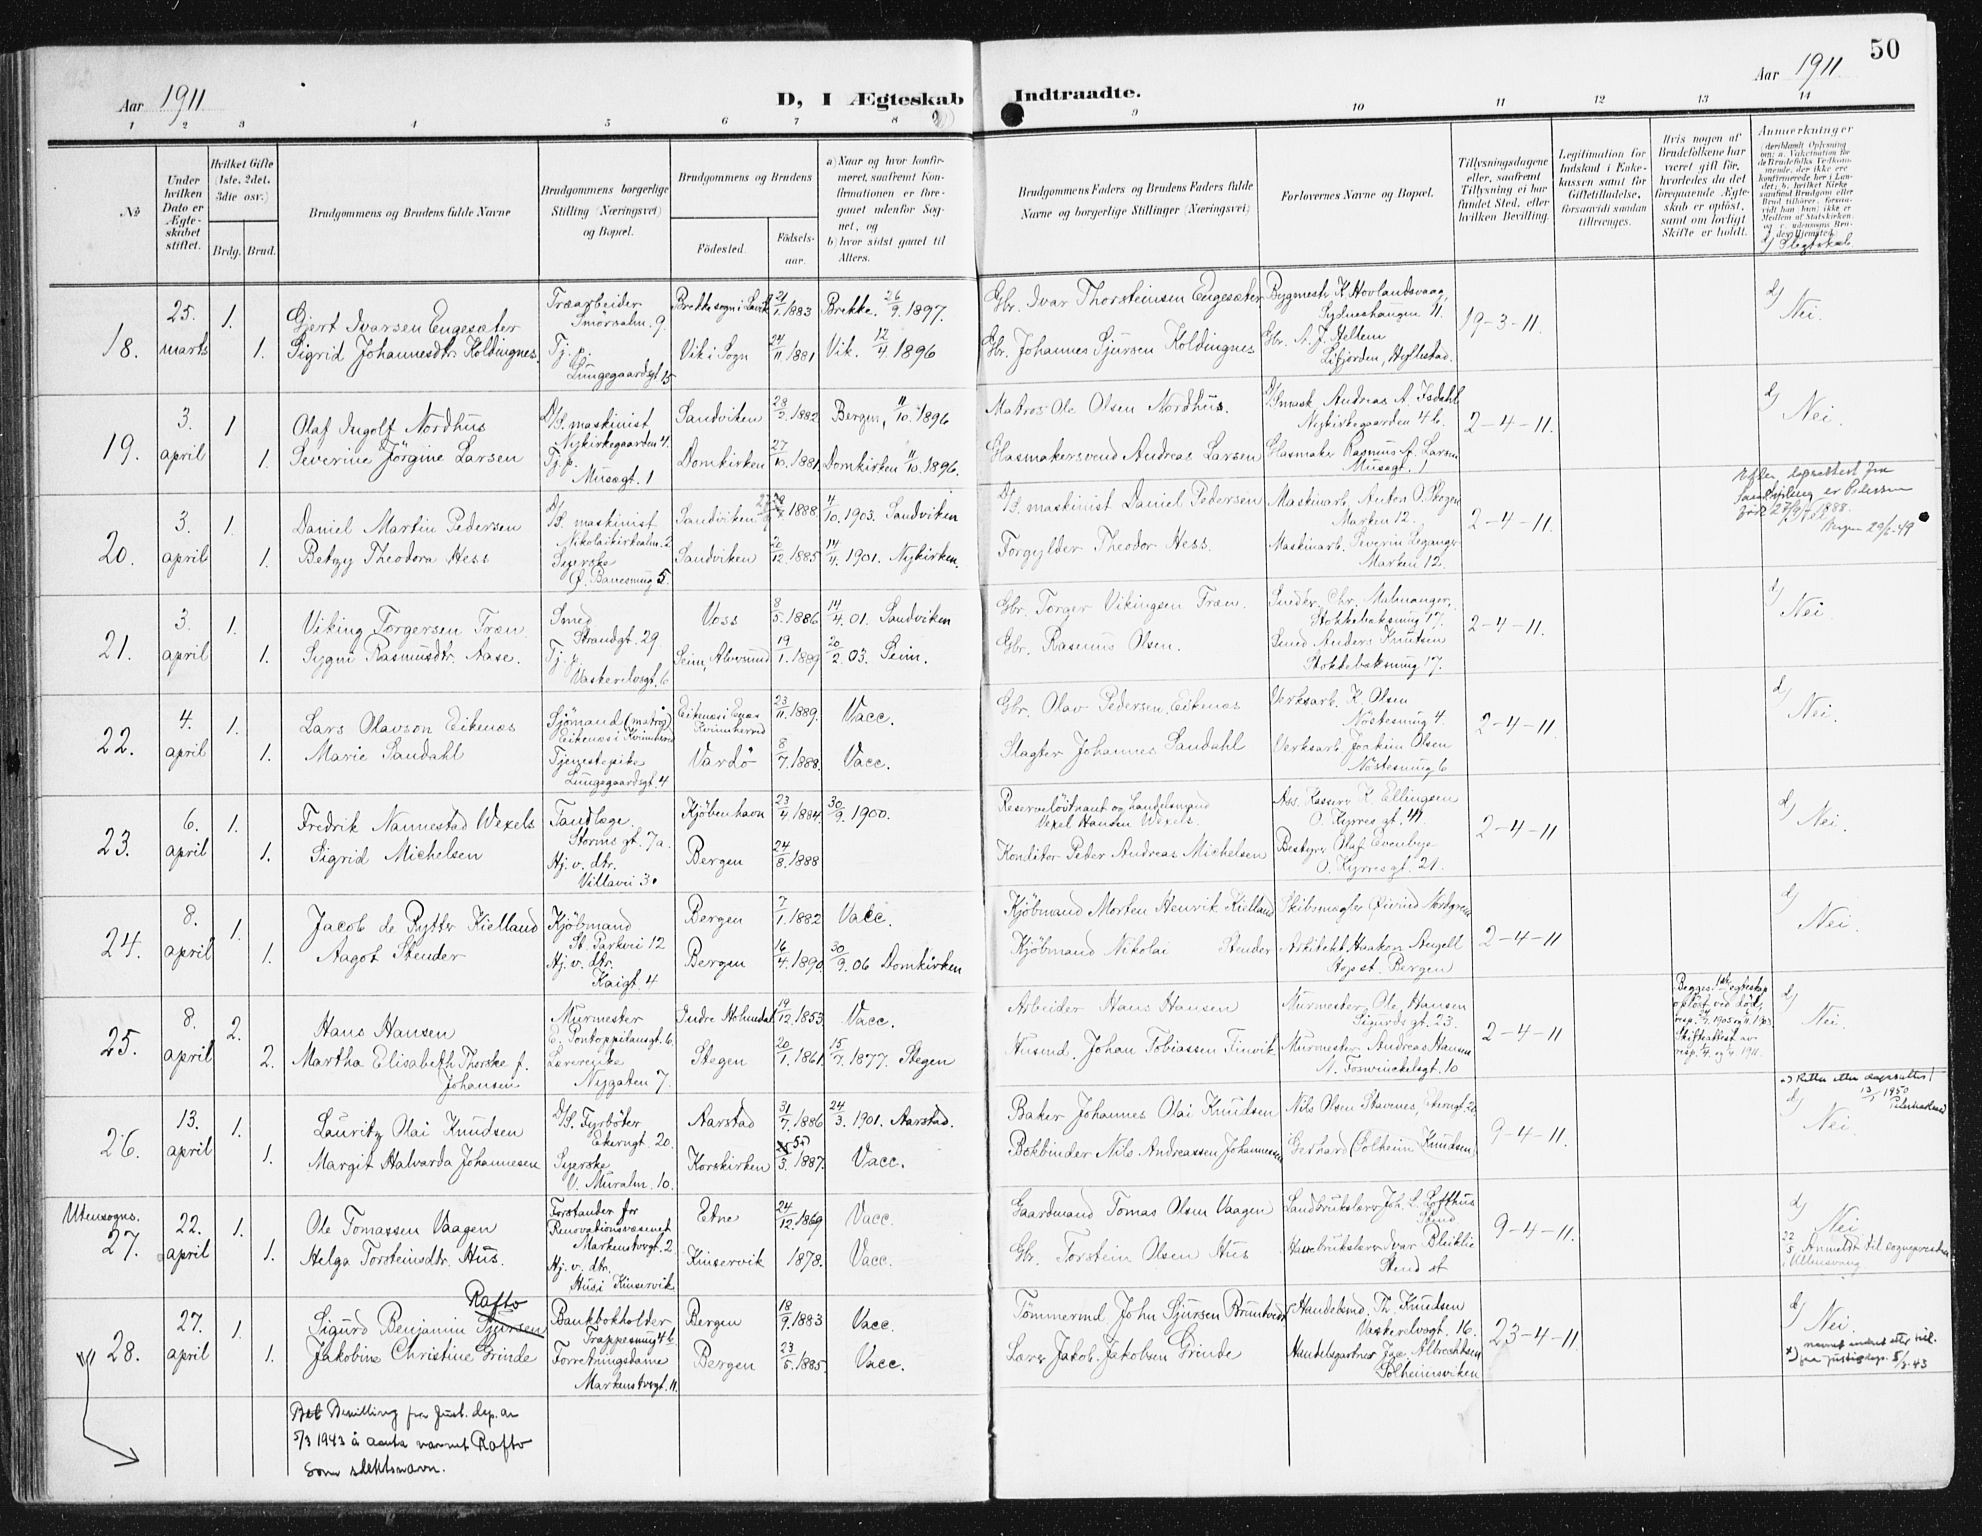 50
Aar 1911
D, I Ægteskab Indtraadte.
Aar 1911
1 2 3 4 5 6 7 8 9 10 11 12 13 14
No
Under hvilken Dato er Ægteskabet stiftet.
Hvilket Gifte (1ste, 2det, 3die osv.)
Brdg. Brud.
Brudgommens og Brudens fulde Navne
Brudgommens borgerlige Stilling (Næringsvei) og Bopæl.
Brudgommens og Brudens
Födested. Födsels-aar.
a) Naar og hvor konfirmeret, saafremt Konfirmationen er foregaaet udenfor Sognet, og
b) hvor sidst gaaet til Alters.
Brudgommens Faders og Brudens Faders fulde Navne og borgerlige Stillinger (Næringsvei)
Forlovernes Navne og Bopæl.
Tillysningsdagene eller, saafremt Tillysning ei har fundet Sted, efter hvilken Bevilling.
Legitimation for Indskud i Enkekassen samt for Giftetilladelse, forsaavidt saadan tiltrænges.
Hvis nogen af Brudefolkene har været gift før, hvorledes da det foregaaende Ægteskab er opløst, samt om lovligt Skifte er holdt.
Anmærkninger
d) Slegtskab
18. 25. marts 1. Gjert Ivarsen Engesæter Træarbeider Smörsalm. 9. Brekke sogn i Lavik 21/1 1883 Brekke. 26/9. 1897. Gbr. Ivar Thorsteinsen Engesæter Bygmestr. K. Hovlandsvaag, Sydneshaugen 11. 19-3-11. d) Nei.
1. Sigrid Johannesdtr. Koldingnes. Tj. p. Lungegaardsgt. 15 Vik i Sogn 24/11 1881 Vik. 12/4 1896 Gbr. Johannes Sjursen Koldingnes Gbr. A. J. Hellem Lifjorden, Hyllestad.
19. 3. april 1 Olaf Ingolf Nordhus D/S. maskinist Nykirkegaarden 4. Sandviken 28/2. 1882 Bergen, 11/10 1896 Matros Ole Olsen Nordhus. D/Smask Andreas A. Isdahl Nykirkegaarden 4b. 2-4-11. d) Nei.
1. Severine Jörgine Larsen Tj. p. Musægt. 1 Domkirken 27/10. 1881. Domkirken 11/10. 1896. Glasmakersvend Andreas Larsen Glasmaker Rasmus A. Larsen Musægt. 1
20. 3. april 1. Daniel Martin Pedersen D/S. maskinist Nikolaikirkealm. 2 Sandviken 1888 4/10. 1903. Sandviken D/S. maskinist Daniel Pedersen Maskinarb. Anton O. Skogen Marken 12. 2-4-11.
1. Betzy Theodora Hess Syerske Ø. Banesmug 5. Sandviken 20/12. 1885 14/4 1901. Nykirken. Forgylder Theodor Hess. Maskinarb. Severin Leganger Marken 12.
21. 3. april 1. Viking Torgersen Træn Smed Strandgt. 29. Voss 8/5. 1886 14/4. 01. Sandviken Gbr. Torger Vikingsen Træn. Snedkr. Chr. Malmanger, Stokkebaksmug 17. 2-4-11. d) Nei
1. Sygni Rasmusdtr. Aase. Tj. p. Vaskerelvsgt. 6 Seim, Alversund 19/1. 1889 20/2. 03. Seim. Gbr. Rasmus Olsen. Smed Anders Knutsen Stokkebaksmug 17.
22. 4. april 1. Lars Olavson Eikenæs Sjömand (matros) Eikenæs i Kvindherred Eikenæs i Enæs Kvinnherred 23/11. 1889. Vacc. Gbr. Olav Pedersen Eikenæs Verksarb. K. Olsen Nöstesmug 4. 2-4-11 d) Nei.
1. Marie Sandahl Tjenestepike Lungegaardsgt. 4 Vardö 8/7. 1888. Vacc. Slagter Johannes Sandahl Verksarb. Joakim Olsen Nöstesmug 6
23. 6. april 1. Fredrik Nannestad Wexels Tandlæge. Storms gt. 7a. Kjöbenhavn 23/4 1884. 30/9. 1900. Reservelöitnant og handelsmand Vexel Hansen Wexels. Ass. Kasserer K. Ellingsen O. Kyrres gt. 41. 2-4-11 d) Nei.
1. Sigrid Michelsen Hj. v. dtr. Villavei 3. Bergen 24/8. 1888 Konditor Peder Andreas Michelsen Bestyrer Olaf Evenbye O. Kyrresgt. 21.
24. 8. april 1. Jacob de Rytter Kielland Kjöbmand St. Parkvei 12 Bergen 7/1. 1882 Vacc. Kjöbmand Morten Henrik Kielland Skibsmægler Øivind Nordgreen 2-4-11 d) Nei.
1. Aagot Stender Hj. v. dtr. Kaigt. 4 Bergen 16/4. 1890 30/9. 06 Domkirken Kjöbmand Nikolai Stender Arkitekt Haakon Angell Hop st. Bergen
25. 8. april 2. Hans Hansen Murmester E. Pontoppitansgt. 6. Indre Holmedal 19/12. 1853 Vacc. Arbeider Hans Hansen Murmester Ole Hansen Sigurds gt. 23. 2-4-11 Begges 1ste egteskap opløst ved død, d) Nei
2. Martha Elisabeth Thorske f. Johansen Lærerinde Nygaten 7. Stegen 20/1. 1861 15/7. 1877. Stegen Husmd. Johan Tobiassen Finvik Murmester Andreas Hansen N. Foswinckelsgt. 10
26. 13. april 1. Lauritz Olai Knudsen D/S. Fyrböter Ekerngt. 20. Aarstad 31/7. 1886 24/3. 1901. Aarstad. Baker Johannes Olai Knudsen Nils Olsen Stavenes, Ekerngt. 20 9-4-11. d) Nei.
1. Margit Halvarda Johannesen Syerske V. Muralm. 10. Korskirken 1887. Vacc. Bokbinder Nils Andreassen Johannessen Gerhard (Solheim) Knudsen
Utensogns. 27. 22. april 1. Ole Tomassen Vaagen Forstander for Renovationsvæsenet Markensvgt. 2 Etne 24/12. 1869 Vacc. Gaardmand Tomas Olsen Vaagen Landbrukslærer Joh. L. Lofthus Stend 9-4-11. d) Nei
1. Helga Torsteinsdtr. Hus. Hj. v. dtr. Hus i Kinservik Kinservik 1878. Vacc. Gbr. Torstein Olsen Hus Havebrukslærer Ivar Bleiklie Stend st 22/5 Anmeldt til sognepresten i Ullensvang
28. 27. april 1. Sigurd Benjamin Sjursen Rafto Bankbokholder Trappesmug 4b. Bergen 18/9. 1883 Vacc. Tömmermd. John Sjursen Bruntveit Handelsmd. Th. Knudsen Vaskerelvsgt. 16. 23-4-11 d) Nei.
1. Jakobine Christine Grinde Forretningsdame Markensvgt. 11. Bergen 23/5. 1885. Vacc. Lærer Jakob Jakobsen Grinde Handelsgartner Solheimsviken
Bevilling fra Just. dep. av
5/3 1943 å anta navnet Rafto
som slektsnavn.